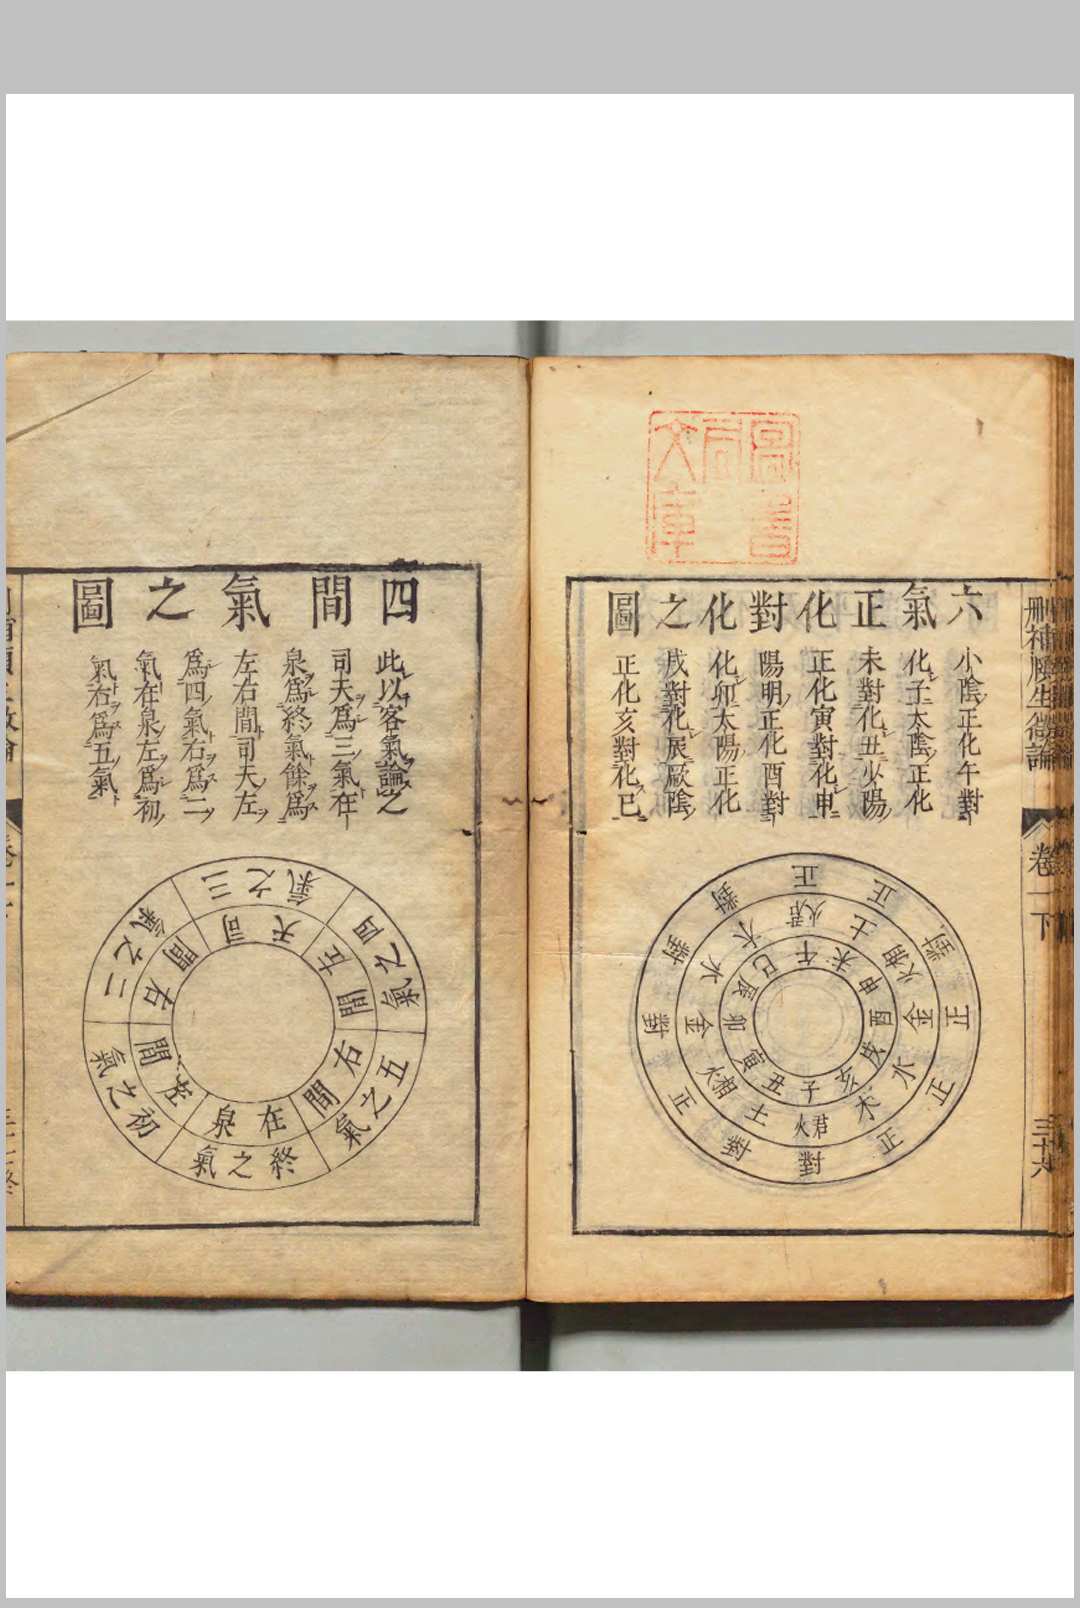 刪補頤生微論
卷一下
三十六
圖書
局
文庫
六氣正化對化之圖
小陰正化午對
化子太陰正化
未對化丑少陽
正化寅對化申
陽明正化酉對
化卯太陽正化
戌對化辰厥陰
正化亥對化巳
正 正 對 正 正 正 對 對 正 對 對 對
君火 土 相火 金 水 木 君火 土 相火 金 水 木
午 未 申 酉 戌 亥 子 丑 寅 卯 辰 巳
四間氣之圖
此以客氣論之
司天爲三氣在
泉爲終氣餘爲
左右間司天左
爲四氣右爲二
氣在泉左爲初
氣右爲五氣
初之氣
二之氣
三之氣
四之氣
五之氣
終之氣
左間
右間
司天
左間
右間
在泉